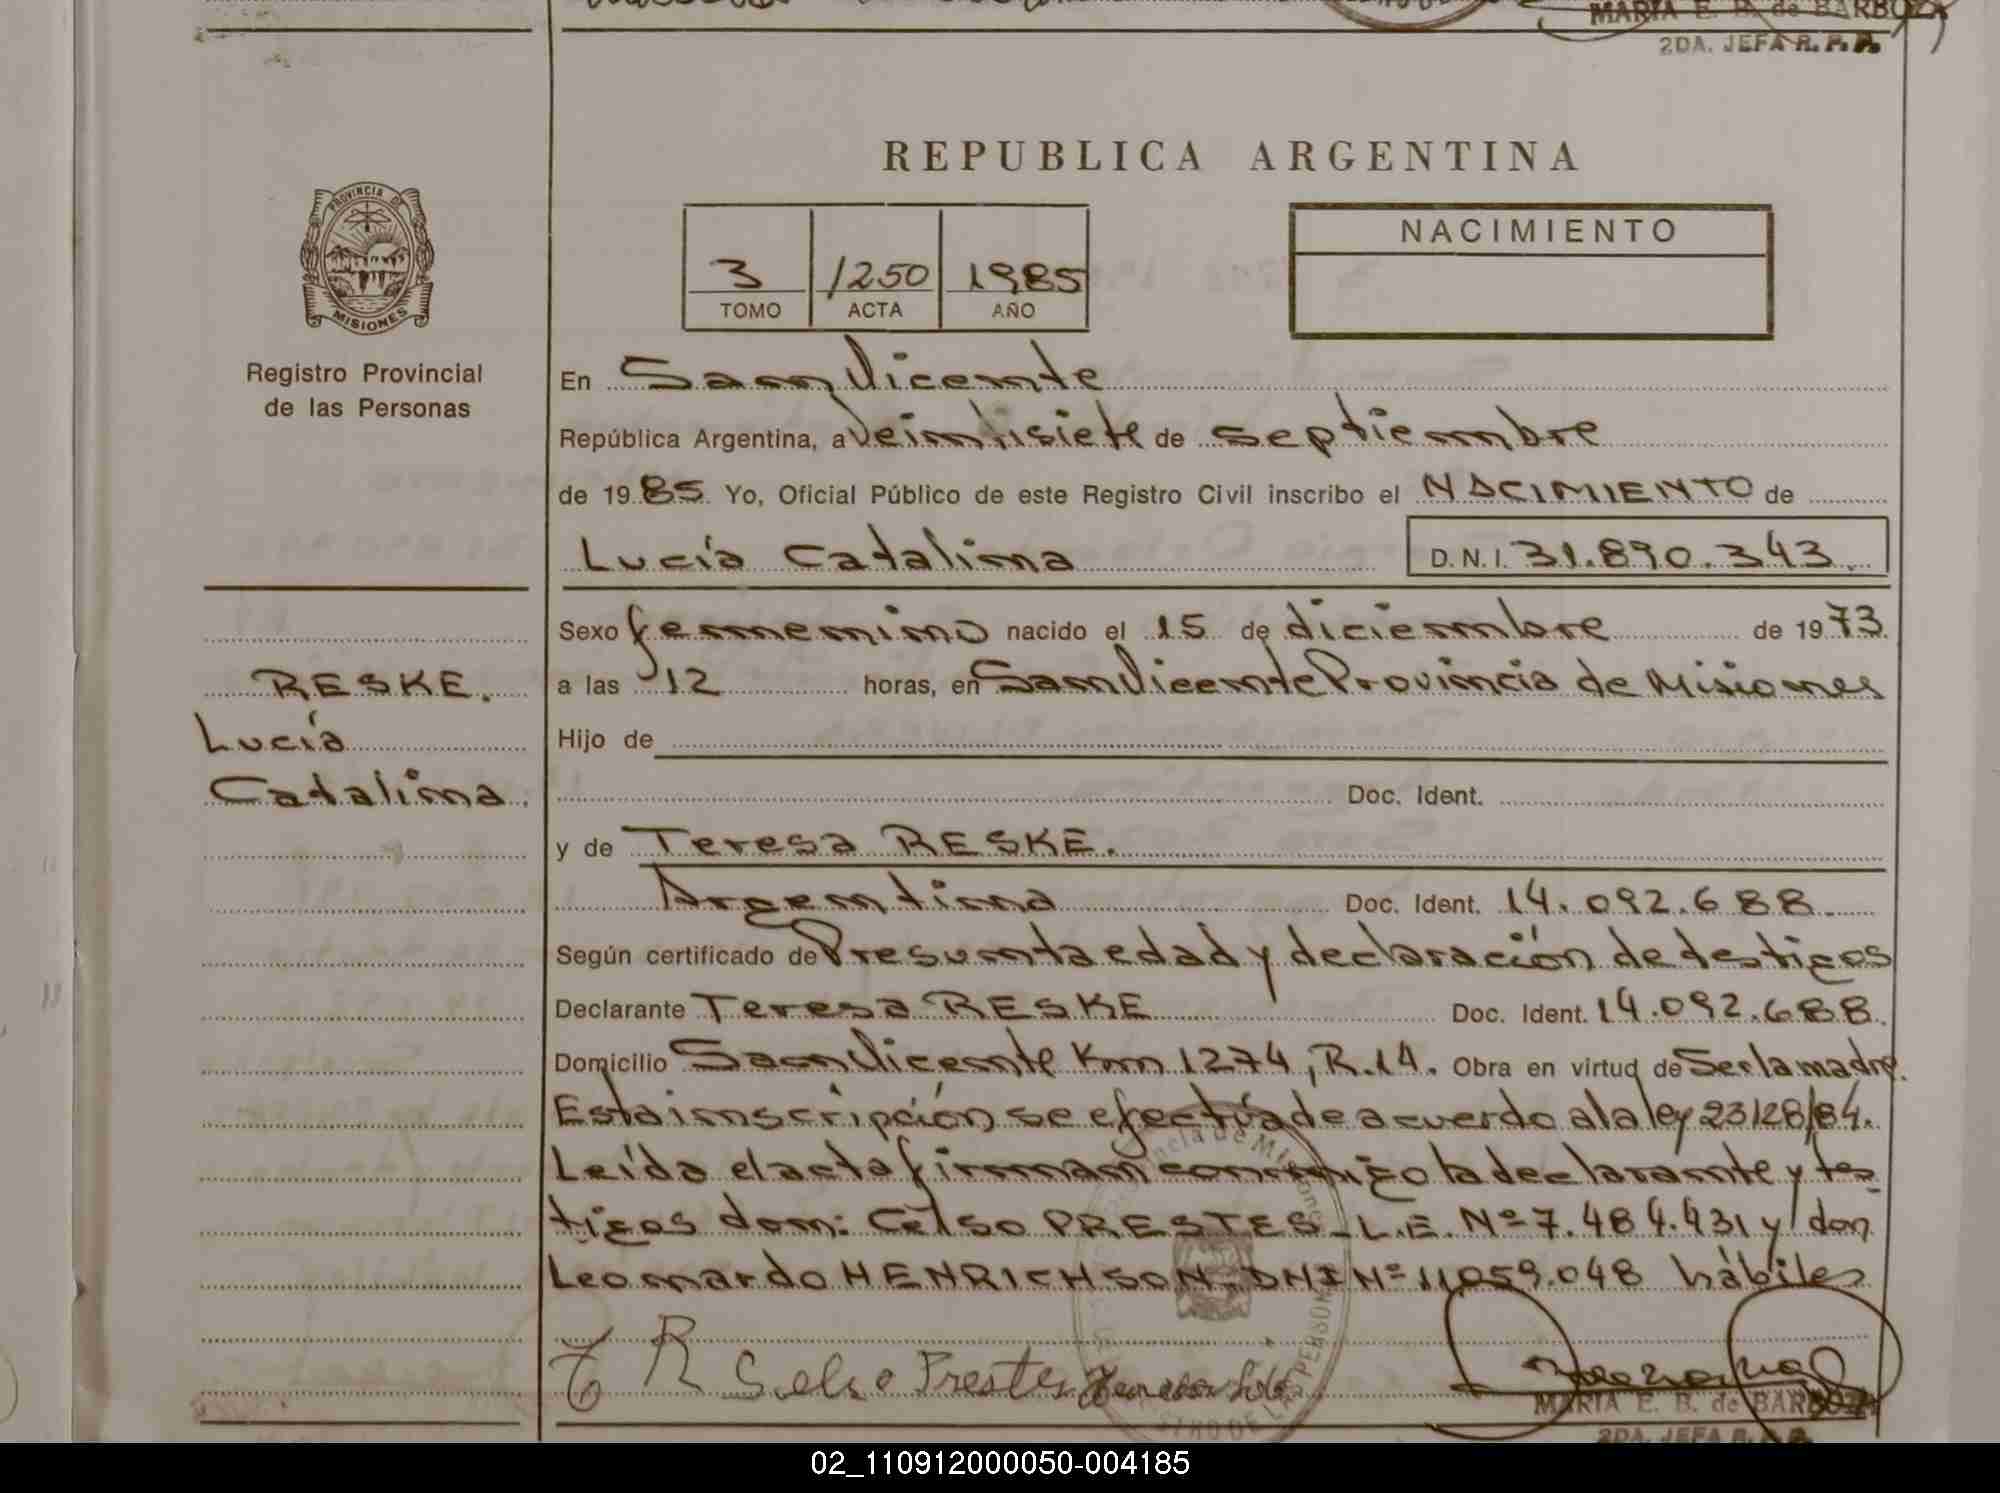 MARIA E. B. de BARBOZA
2DA. JEFA R. P. P.
REPUBLICA ARGENTINA
PROVINCIA DE
MISIONES
Registro Provincial
de las Personas
3 1250 1985
TOMO ACTA AÑO
NACIMIENTO
En San Vicente
República Argentina, a Veintisiete de septiembre
de 1985 Yo, Oficial Público de este Registro Civil inscribo el NACIMIENTO de
Lucía Catalina D.N.I. 31.890.343
Sexo femenino nacido el 15 de diciembre de 1973
RESKE.
Lucía
Catalina.
a las 12 horas, en San Vicente Provincia de Misiones
Hijo de
Doc. Ident.
y de Teresa RESKE.
Argentina Doc. Ident. 14.092.688
Según certificado de Presunta edad y declaración de testigos
Declarante Teresa RESKE Doc. Ident. 14.092.688
Domicilio San Vicente Km 1274, R.14. Obra en virtud de Ser la madre.
Esta inscripción se efectúa de acuerdo a la ley 23128/84.
Leída el acta firman conmigo la declarante y tes
tigos don: Celso PRESTES - L.E. Nº 7.484.431 y don
Leonardo HENRICHSON - DNI Nº 11.059.048 hábiles
T R Selso Prestes
MARIA E. B. de BARBOZA
2DA. JEFA R. P. P.
02_110912000050-004185